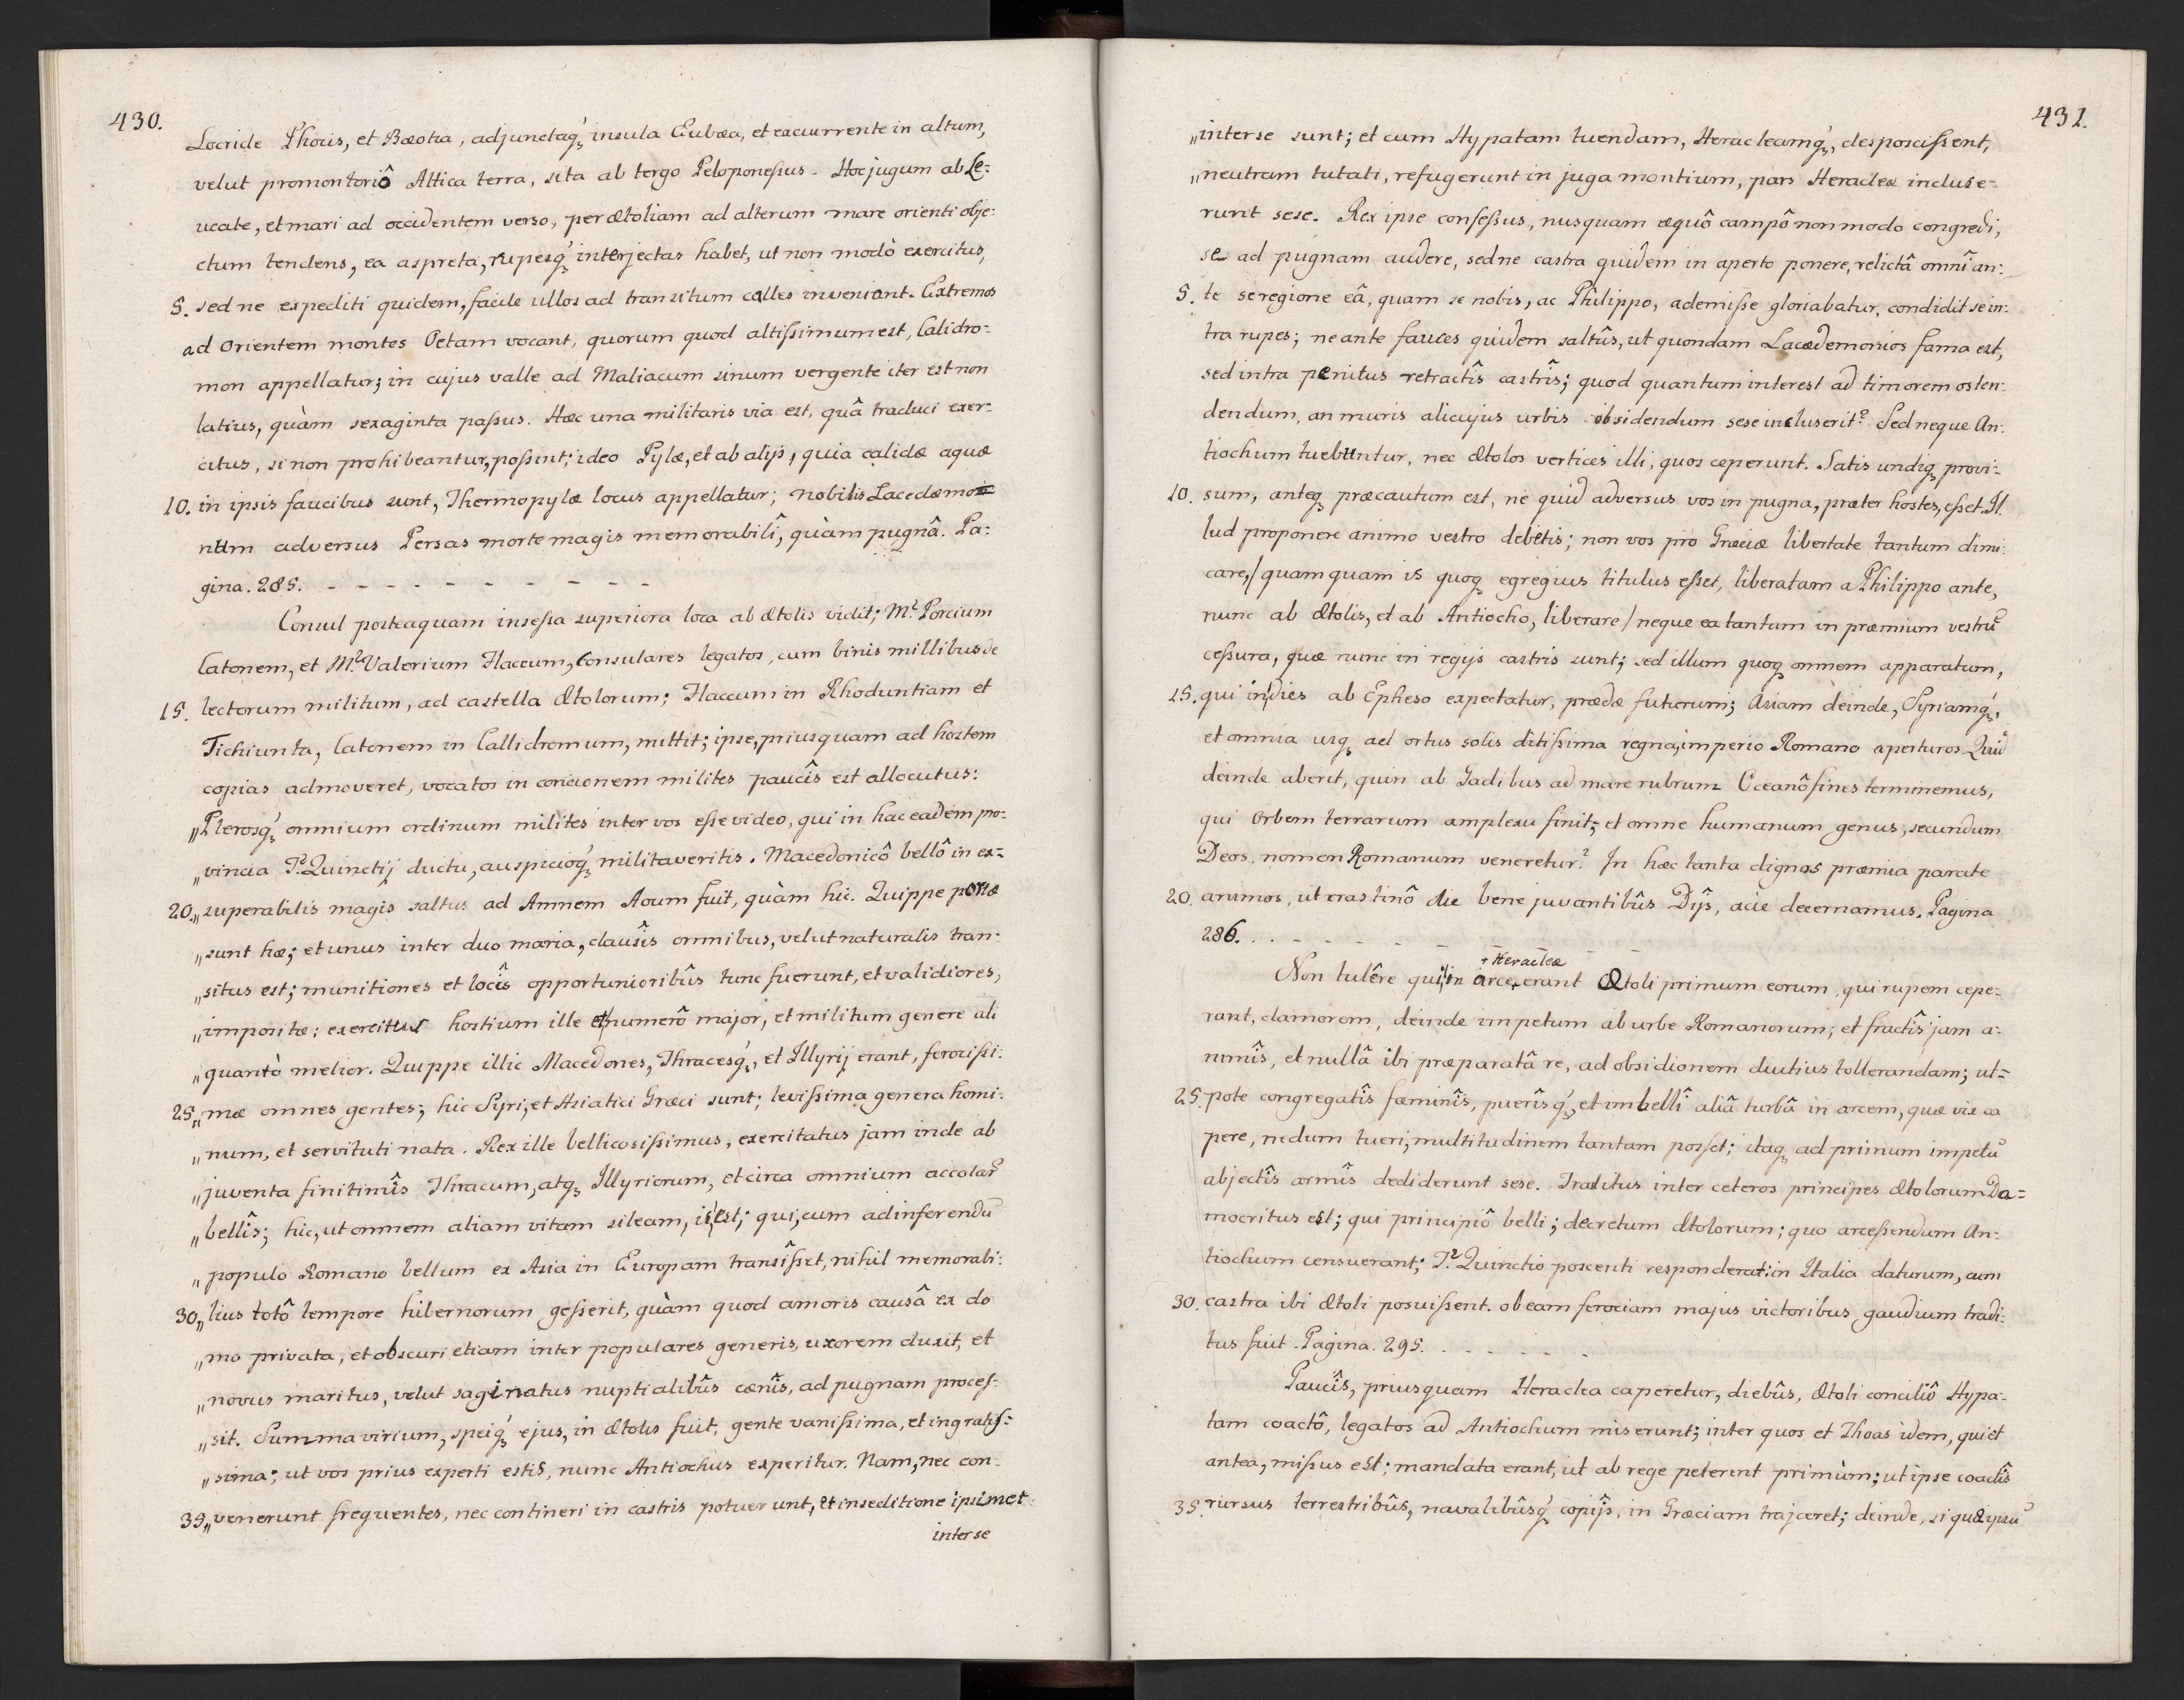 430.
Locride Phocis, et Bæotia, adjunctaq́ꝫ insula Eubæa, et excurrente in altum,
velut promontoriô Attica terra, sita ab tergo Peloponeßus. Hoc jugum ab Le=
ucate, et mari ad occidentem verso, per Ætoliam ad alterum mare orienti obje=
ctum tendens, ea aspreta, rupesq́ꝫ interjectas habet, ut non modò exercitus,
5. sed ne expediti quidem, facile ullos ad transitum calles inveniant. Extremos
ad Orientem montes Oetam vocant, quorum quod altißimum est, Calidro=
mon appellatur; in cujus valle ad Maliacum sinum vergente iter est non
latius, quàm sexaginta paßus. Hæc una militaris via est, quâ traduci exer=
citus, si non prohibeantur, poßint; ideo Pylæ, et ab alijs, quia calidæ aquæ
10. in ipsis faucibus sunt, Thermopylæ locus appellatur; nobilis Lacedæmo
num adversus Persas morte magis memorabilî, quàm pugnâ. Pa=
gina. 285. - - - - - - - - - - -
Consul posteaquam inseßa superiora loca ab Ætolis vidit; M? Porcium
Catonem, et M? Valerium Flaccum, Consulares legatos, cum binis millibus de
15. lectorum militum, ad castella Ætolorum; Flaccum in Rhoduntiam et
Tichiunta, Catonem in Callidromum, mittit; ipse, priusquam ad hostem
copias admoveret, vocatos in concionem milites paucîs est allocutus:
„Plerosq́ꝫ omnium ordinum milites inter vos eße video, qui in hac eadem pro=
„vincia T? Quinctij ductu, auspicioq́ꝫ militaveritis. Macedonicô bellô in ex=
20. „superabilis magis saltus ad Amnem Aoum fuit, quàm hic. Quippe portæ
„sunt hæ; et unus inter duo maria, clausîs omnibus, velut naturalis tran=
„situs est; munitiones et locîs opportunioribûs tunc fuerunt, et validiores,
„impositæ: exercitus hostium ille et numerô major, et militum genere ali
„quantò melior. Quippe illic Macedones, Thracesq́ꝫ, et Illyrij erant, ferocißi=
25. „mæ omnes gentes; hic Syri, et Asiatici Græci sunt; levißima genera homi=
„num, et servituti nata. Rex ille bellicosißimus, exercitatus jam inde ab
„juventa finitimîs Thracum, atqꝫ Illyriorum, et circa omnium accolar̃
„bellîs; hic, ut omnem aliam vitam sileam, is est; qui, cum ad inferendū
„populo Romano bellum ex Asia in Europam transîßet, nihil memorabi=
30. „lius totô tempore hibernorum geßerit, quàm quod amoris causâ ex do
„mo privata, et obscuri etiam inter populares generis, uxorem duxit, et
„novus maritus, velut saginatus nuptialibûs cænîs, ad pugnam proceß=
„sit. Summa virium, speiq́ꝫ ejus, in Ætolis fuit, gente vanißima, et ingratiß=
„sima; ut vos prius experti estis, nunc Antiochus experitur. Nam, nec con=
35. „venerunt frequentes, nec contineri in castris potuerunt, et in seditione ipsimet
inter se
431.
„inter se sunt; et cum Hypatam tuendam, Heracleamq́ꝫ, desposcißent,
„neutram tutati, refugerunt in juga montium, pars Heracleæ incluse=
runt sese. Rex ipse confeßus, nusquam æquô campô non modo congredi,
se ad pugnam audere, sed ne castra quidem in aperto ponere, relictâ omnî an=
5. te se regione eâ, quam se nobis, ac Philippo, ademiße gloriabatur, condidit se in=
tra rupes; ne ante fauces quidem saltûs, ut quondam Lacædemonios fama est,
sed intra penitus retractîs castrîs; quod quantum interest ad timorem osten=
dendum, an muris alicujus urbis obsidendum sese incluserit? Sed neque An=
tiochum tuebuntur, nec Ætolos vertices illi, quos ceperunt. Satis undiqꝫ provi=
10. sum, anteqꝫ præcautum est, ne quid adversus vos in pugna, præter hostes, eßet. Il=
lud proponere animo vestro debetis; non vos pro Græciæ libertate tantum dimi=
care, /quamquam is quoqꝫ egregius titulus eßet, liberatam a Philippo ante,
nunc ab Ætolis, et ab Antiocho, liberare/ neque ea tantum in præmium vestrū
ceßura, quæ nunc in regijs castris sunt; sed illum quoqꝫ omnem apparatum,
15. qui in dies ab Epheso expectatur, prædæ futurum; Asiam deinde, Syriamq́ꝫ,
et omnia usqꝫ ad ortus solis ditißima regna, imperio Romano aperturos. Quid
deinde aberit, quin ab Gadibus ad mare rubrum Oceanô fines terminemus,
qui Orbem terrarum amplexu finit; et omne humanum genus, secundum
Deos, nomen Romanum veneretur? In hæc tanta dignos præmia parate
20. animos, ut crastinô die bene juvantibûs Dijs, acie decernamus. Pagina
286. . . - - - - - - - - -
+ Heracleæ
Non tulêre qui in arce + erant Ætoli primum eorum, qui rupem cepe=
rant, clamorem, deinde impetum ab urbe Romanorum; et fractîs jam a=
nimîs, et nullâ ibi præparatâ re, ad obsidionem diutius tollerandam; ut=
25. pote congregatîs fæminîs, puerîsq́ꝫ, et imbellî aliâ turbâ in arcem, quæ vix ca
pere, nedum tueri, multitudinem tantam posset; itaqꝫ ad primum impetū
abjectîs armîs dediderunt sese. Traditus inter ceteros principes Ætolorum Da=
mocritus est; qui principiô belli; decretum Ætolorum; quo arceßendum An=
tiochum censuerant; T? Quinctio poscenti responderat: in Italia daturum, cum
30. castra ibi Ætoli posuißent. ob eam ferociam majus victoribus gaudium tradi=
tus fuit. Pagina. 295. . - - - - -
Paucîs, priusquam Heraclea caperetur, diebûs, Ætoli conciliô Hypa=
tam coactô, legatos ad Antiochum miserunt; inter quos et Thoas idem, qui et
antea, mißus est; mandata erant, ut ab rege peterent primùm; ut ipse coactîs
35. rursus terrestribûs, navalibûsq́ꝫ copijs, in Græciam trajceret; deinde, si quæ ipsū